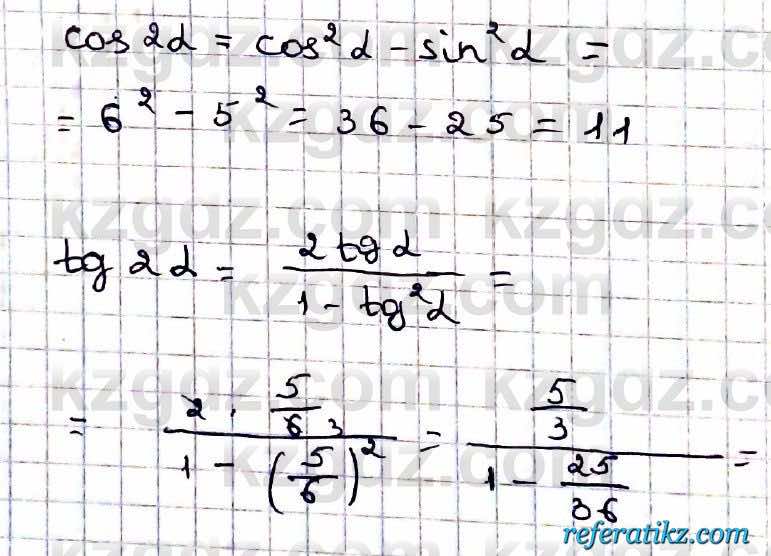 cos 2α = cos²α - sin²α =
= 6² - 5² = 36 - 25 = 11
tg 2α = \frac{2 tg α}{1 - tg²α} =
= \frac{2 · \frac{5}{6} 3}{1 - (\frac{5}{6})²} = \frac{\frac{5}{3}}{1 - \frac{25}{36}} =
kzgdz.com
referatikz.com